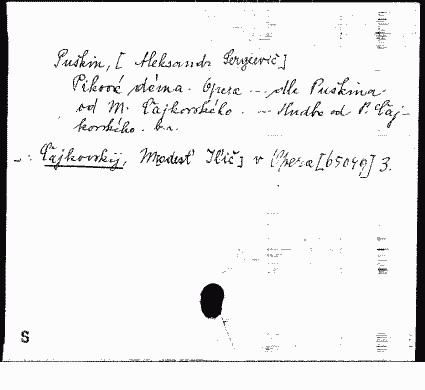 Puškin, [Aleksandr Sergěevič]
Piková dáma. Opera ... dle Puškina
od M. Čajkovského. ... Hudba od P. Čaj-
kovského. b.r.
_ : Čajkovskij, Modest Il'ič] v Opera [65049] 3.
S